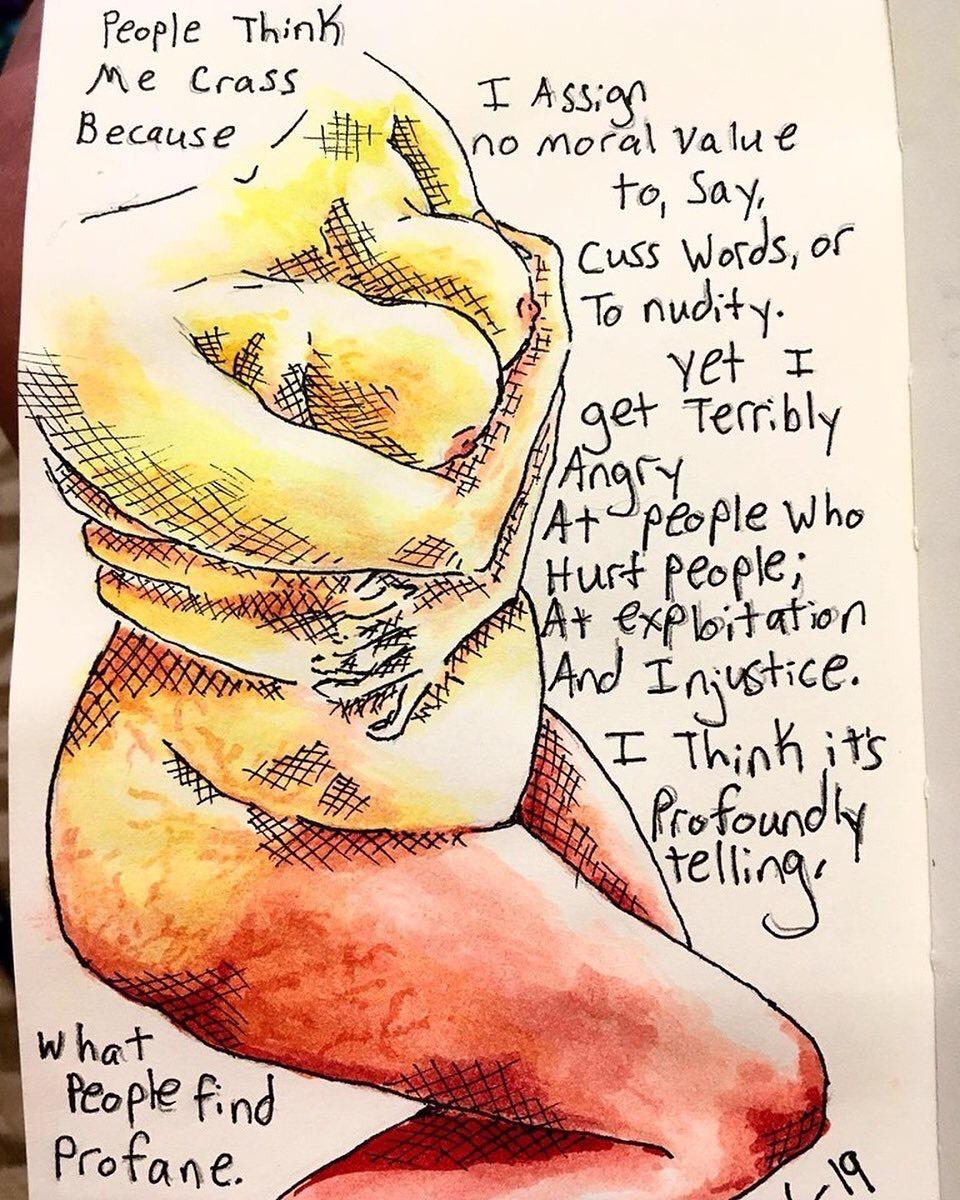 People Think
Me Crass
Because
I Assign
no moral value
to, say,
cuss words, or
To nudity.
yet I
get Terribly
Angry
At people who
Hurt people;
At exploitation
And Injustice.
I Think it's
Profoundly
telling,
what
People find
Profane.